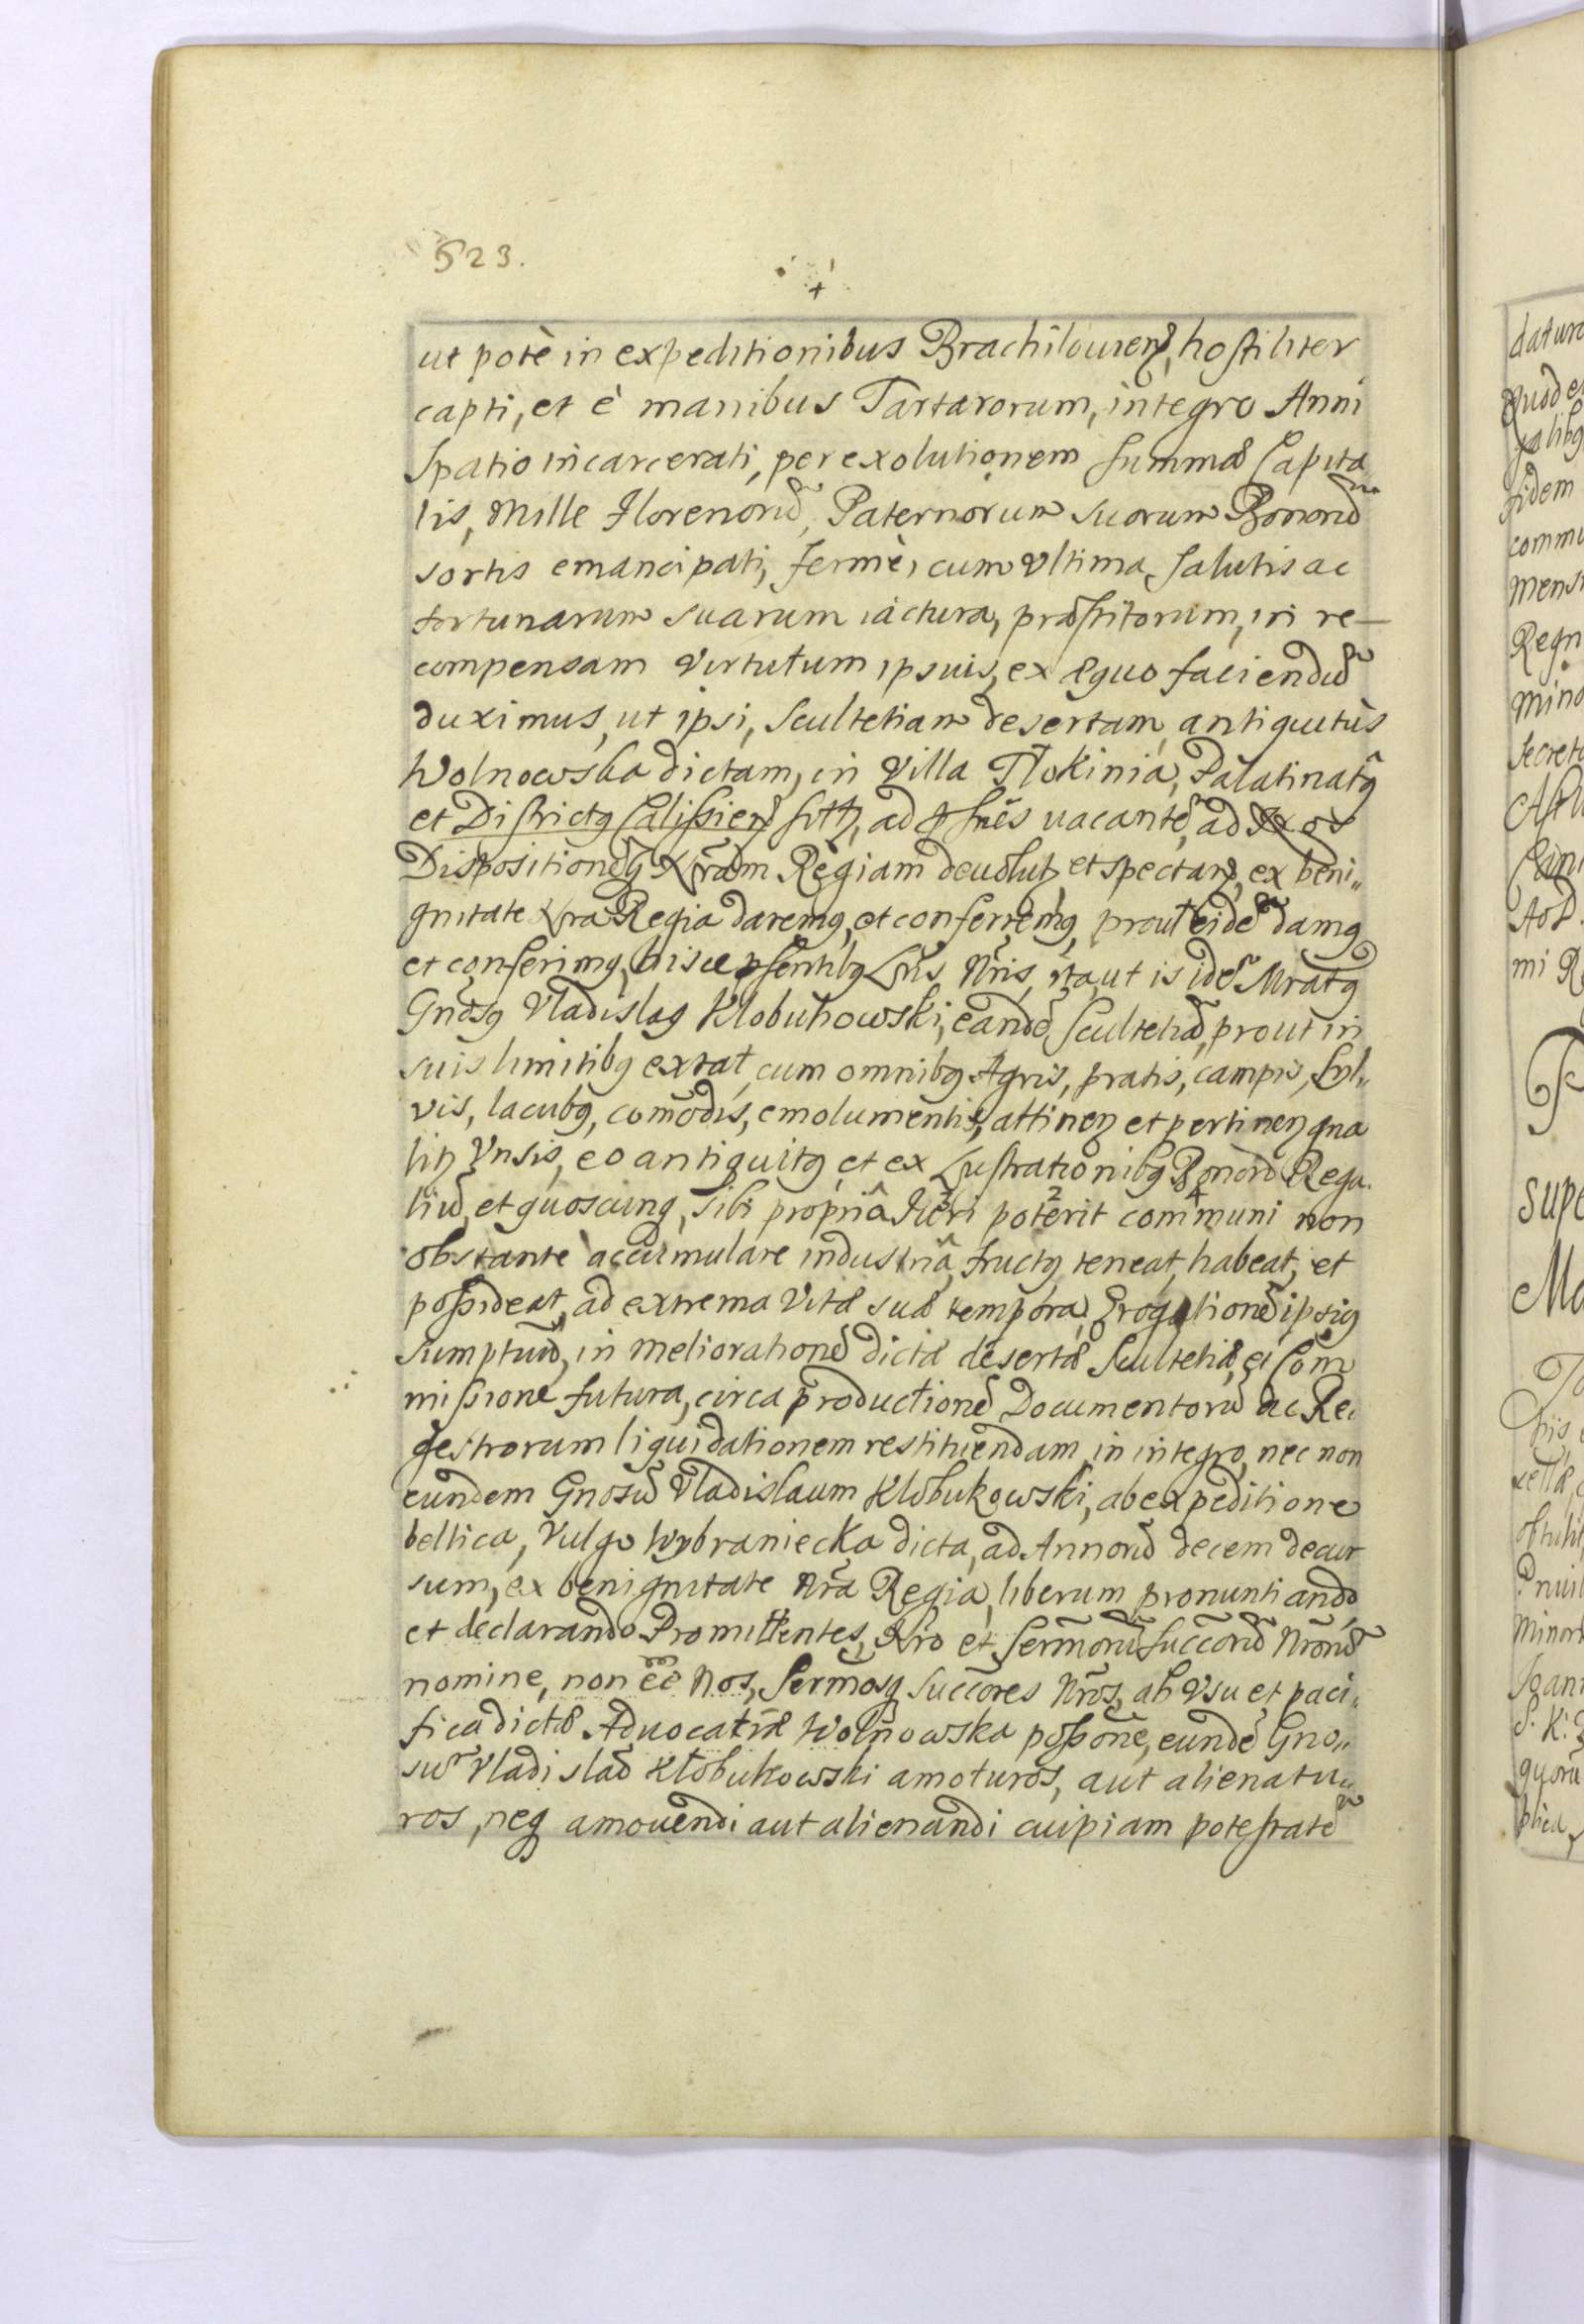 523.
ut potè in expeditionibus Brachilouien, hostiliter
capti, et è manibus Tartarorum, integro Anni
spatio incarcerati, per exolutionem summæ Capita
lis, Mille Florenorũ, Paternorum suorum Bonorũ
sortis emancipati, fermè, cum Vltima Salutis ac
fortunarum suarum iactura, præstitorum, in re-
compensam Virtutum ipsius, ex æquo faciendũ
duximus, ut ipsi, Scultetiam desertam, antiquitùs
Wolnowska dictam, in Villa Tłokinia, Palatinatq
et Districtq Calissien sitt, ad vacantẽ, ad
Dispositionẽq Nr̃am Regiam deuolut, et spectan, ex beni„
gnitate Nr̃a Regia daremq, et conferremq, prout eidẽ damq
et conferimq, hisce pñtibq Lr̃is Nr̃is, ita ut is idẽ
Gnosq Vladislaq Klobukowski, eandẽ Scultetiã, prout in
suis limitibq extat, cum omnibq Agris, pratis, campis, Syl„
vis, lacubq, comodis, emolumentis, attinen et pertinen qua
lit Vnsis, eo antiquitq et ex Lustrationibq Bonorũ Rega.
liũ, et quoscunq, sibi propriâ fieri poterit communi non
obstante accumulare industriâ, fructq teneat, habeat, et
possideat, ad extrema Vitæ suæ tempora, Erogationẽ ipsiq
sumptuũ, in meliorationẽ dictæ desertæ Scultetiæ, ei Com
missione futura, circa productionẽ Documentorũ ac Re„
gestrorum liquidationem restituendam in integro, nec non
eundem Gnosũ Vladislaum Klobukowski, ab expeditione
bellica, Vulgo Wybraniecka dicta, ad Annorũ decem decur
sum, ex benignitate Nr̃a Regia, liberum pronuntiando
et declarando Promittentes, Nr̃o et Serm̃orũ Succorũ Nr̃orũ
nomine, non eẽ Nos, Serm̃osq Succores Nr̃os, ab Vsu et paci„
fica dictæ Aduocatiæ Wolnowska possõne, eundẽ Gno„
sũ Vladislaũ Kłobukowski amoturos, aut alienatu„
ros, neq amouendi aut alienandi cuipiam potestatẽ